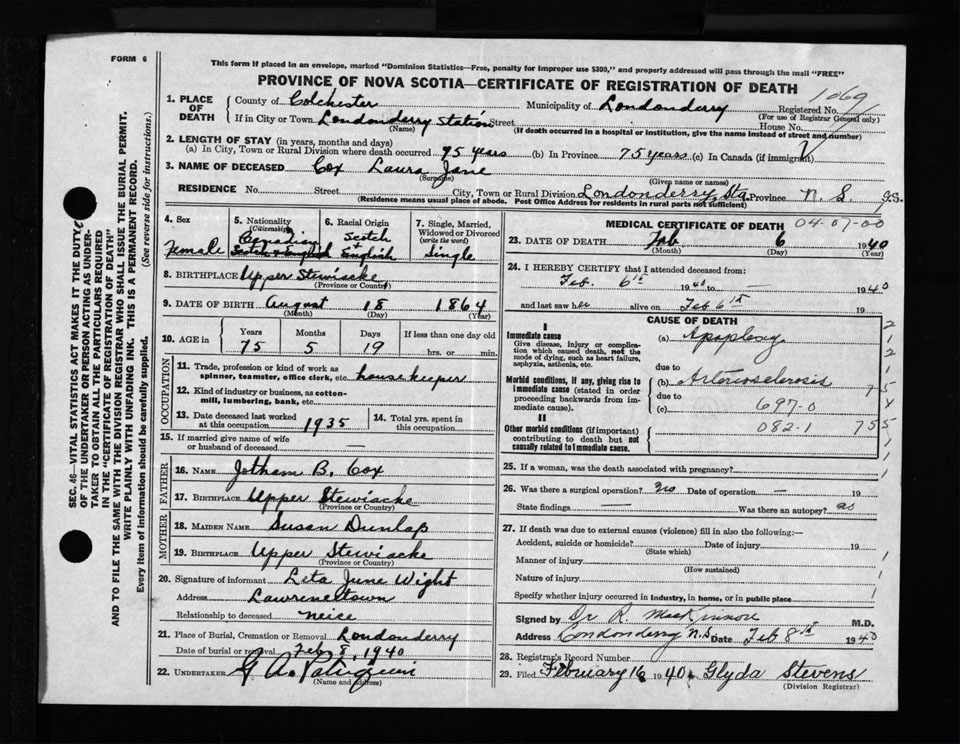 FORM 6
This form if placed in an envelope, marked "Dominion Statistics—Free, penalty for improper use $300," and properly addressed will pass through the mail "FREE"
PROVINCE OF NOVA SCOTIA—CERTIFICATE OF REGISTRATION OF DEATH
1069
1. PLACE OF DEATH
County of Colchester Municipality of Londonderry Registered No.
(For use of Registrar General only)
If in City or Town Londonderry Station Street House No.
(Name) (If death occurred in a hospital or institution, give the name instead of street and number)
2. LENGTH OF STAY (in years, months and days)
(a) In City, Town or Rural Division where death occurred 75 years (b) In Province 75 years (c) In Canada (if immigrant)
3. NAME OF DECEASED Cox Laura Jane
(Surname) (Given name or names)
RESIDENCE No. Street City, Town or Rural Division Londonderry Sta. Province N. S.
(Residence means usual place of abode. Post Office Address for residents in rural parts not sufficient)
4. Sex Female
5. Nationality (Citizenship) Canadian Scotch & English
6. Racial Origin Scotch + English
7. Single, Married, Widowed or Divorced (write the word) Single
8. BIRTHPLACE Upper Stewiacke
(Province or Country)
9. DATE OF BIRTH August 18 1864
(Month) (Day) (Year)
10. AGE in Years Months Days If less than one day old
75 5 19 hrs. or min.
OCCUPATION
11. Trade, profession or kind of work as spinner, teamster, office clerk, etc. housekeeper
12. Kind of industry or business, as cotton-mill, lumbering, bank, etc.
13. Date deceased last worked at this occupation 1935
14. Total yrs. spent in this occupation
15. If married give name of wife or husband of deceased —
FATHER
16. NAME Jotham B. Cox
17. BIRTHPLACE Upper Stewiacke
(Province or Country)
MOTHER
18. MAIDEN NAME Susan Dunlap
19. BIRTHPLACE Upper Stewiacke
(Province or Country)
20. Signature of informant Leta June Wight
Address Lawrencetown
Relationship to deceased neice
21. Place of Burial, Cremation or Removal Londonderry
Date of burial or removal Feb 8, 1940
22. UNDERTAKER G. A.
(Name and address)
MEDICAL CERTIFICATE OF DEATH
04-07-00
23. DATE OF DEATH Feb 6 1940
(Month) (Day) (Year)
24. I HEREBY CERTIFY that I attended deceased from:
Feb. 6th 1940 to — 1940
and last saw her alive on Feb 6th 19
CAUSE OF DEATH
I
Immediate cause
Give disease, injury or complication which caused death, not the mode of dying, such as heart failure, asphyxia, asthenia, etc.
(a) Apoplexy
due to
Morbid conditions, if any, giving rise to immediate cause (stated in order proceeding backwards from immediate cause).
(b) Arteriosclerosis
due to
(c) 697-0
II
Other morbid conditions (if important) contributing to death but not causally related to immediate cause.
082.1
25. If a woman, was the death associated with pregnancy?
26. Was there a surgical operation? no Date of operation — 19
State findings — Was there an autopsy? no
27. If death was due to external causes (violence) fill in also the following:—
Accident, suicide or homicide? Date of injury 19
(State which)
Manner of injury
(How sustained)
Nature of injury
Specify whether injury occurred in industry, in home, or in public place
Signed by Dr R. MacKinnon M.D.
Address Londonderry N.S. Date Feb 8th 1940
28. Registrar's Record Number
29. Filed February 16 1940. Glyda Stevens
(Division Registrar)
SEC. 46—VITAL STATISTICS ACT MAKES IT THE DUTY OF THE UNDERTAKER OR PERSON ACTING AS UNDERTAKER TO OBTAIN ALL THE PARTICULARS REQUIRED IN THE "CERTIFICATE OF REGISTRATION OF DEATH" AND TO FILE THE SAME WITH THE DIVISION REGISTRAR WHO SHALL ISSUE THE BURIAL PERMIT.
WRITE PLAINLY WITH UNFADING INK. THIS IS A PERMANENT RECORD.
Every item of information should be carefully supplied. (See reverse side for instructions.)